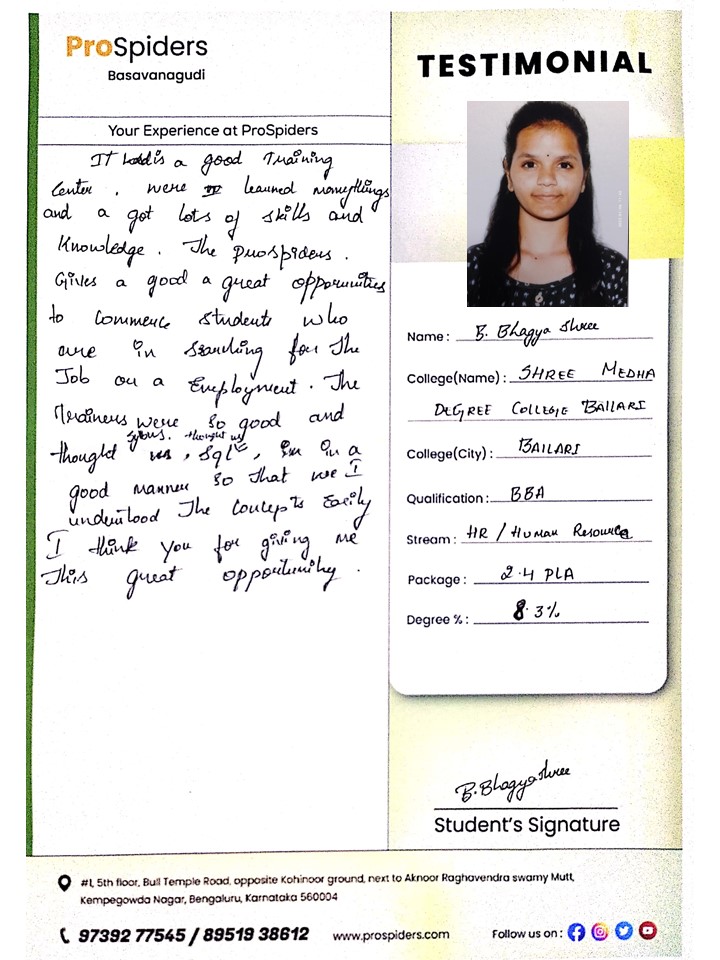 ProSpiders
Basavanagudi
Your Experience at ProSpiders
It is a good Training
Center . were learned manythings
and a got lots of skills and
Knowledge . The prospiders .
Gives a good a great opportunities
to Commerce students who
are in Searching for The
Job or a Employment . The
were so good and
thought us
thought , Sql , in a
good manner so that we I
understood The Concepts Easily
I think you for giving me
This great opportunity .
TESTIMONIAL
Name : B. Bhagya Shree
College(Name) : SHREE MEDHA
DEGREE COLLEGE BALLARI
College(City) : BALLARI
Qualification : BBA
Stream : HR / Human Resource
Package : 2.4 PLA
Degree % : 8.3%
B.Bhagyashree
Student's Signature
#1, 5th floor, Bull Temple Road, opposite Kohinoor ground, next to Aknoor Raghavendra swamy Mutt,
Kempegowda Nagar, Bengaluru, Karnataka 560004
97392 77545 / 89519 38612
www.prospiders.com
Follow us on :